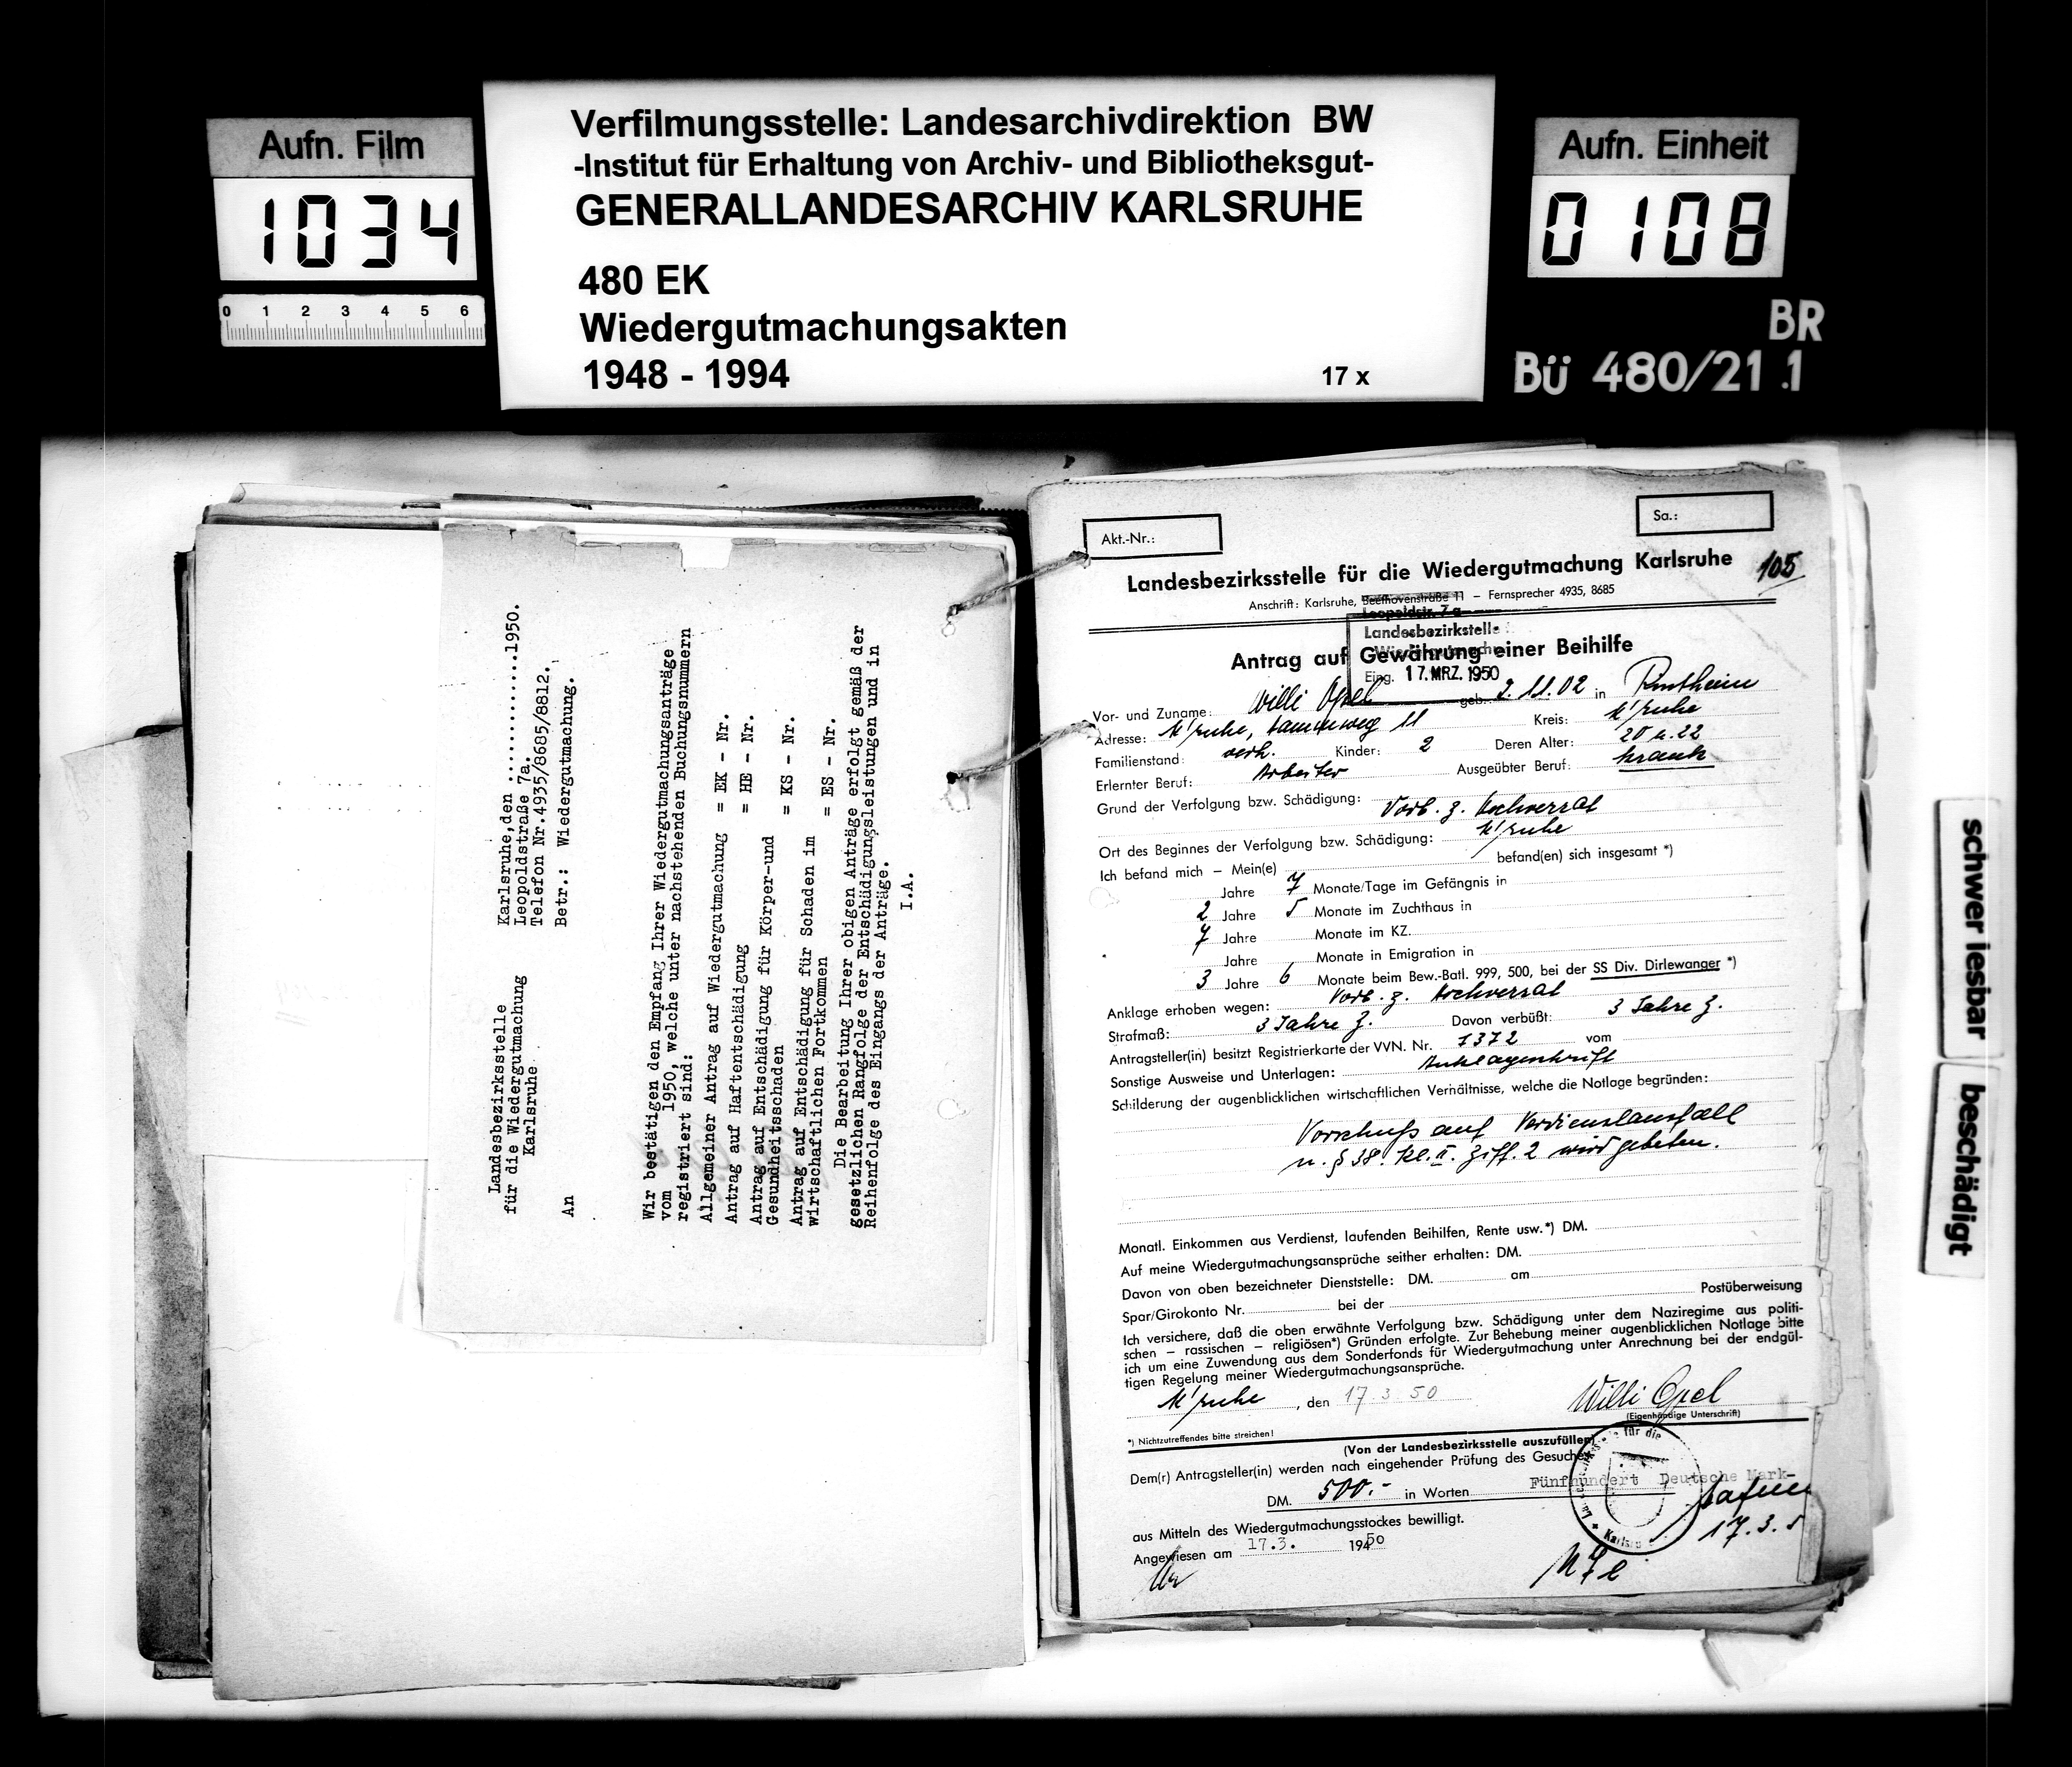 Aufn. Film
1034
0 1 2 3 4 5 6
Verfilmungsstelle: Landesarchivdirektion BW
-Institut für Erhaltung von Archiv- und Bibliotheksgut-
GENERALLANDESARCHIV KARLSRUHE
480 EK
Wiedergutmachungsakten
1948 - 1994
17 x
Aufn. Einheit
0108
BR
Bü 480/21.1
Landesbezirksstelle
für die Wiedergutmachung
Karlsruhe
Karlsruhe,den ............1950.
Leopoldstraße 7a.
Telefon Nr.4935/8685/8812.
An
Betr.: Wiedergutmachung.
Wir bestätigen den Empfang Ihrer Wiedergutmachungsanträge
vom 1950, welche unter nachstehenden Buchungsnummern
registriert sind:
Allgemeiner Antrag auf Wiedergutmachung = EK - Nr.
Antrag auf Haftentschädigung = HE - Nr.
Antrag auf Entschädigung für Körper-und
Gesundheitsschaden = KS - Nr.
Antrag auf Entschädigung für Schaden im
wirtschaftlichen Fortkommen = ES - Nr.
Die Bearbeitung Ihrer obigen Anträge erfolgt gemäß der
gesetzlichen Rangfolge der Entschädigungsleistungen und in
Reihenfolge des Eingangs der Anträge.
I.A.
Akt.-Nr.:
Sa.:
105
Landesbezirksstelle für die Wiedergutmachung Karlsruhe
Anschrift: Karlsruhe, Beethovenstraße 11 – Fernsprecher 4935, 8685
Leopoldstr. 7a
Landesbezirkstelle
Eing. 17. MRZ. 1950
Antrag auf Gewährung einer Beihilfe
Vor- und Zuname: Willi Opel geb. 2.11.02 in Rintheim
Adresse: K'ruhe, 11 Kreis: K'ruhe
Familienstand: verh. Kinder: 2 Deren Alter: 20 u. 22
Erlernter Beruf: Arbeiter Ausgeübter Beruf: krank
Grund der Verfolgung bzw. Schädigung: Vorb. z. Hochverrat
Ort des Beginnes der Verfolgung bzw. Schädigung: K'ruhe
Ich befand mich – Mein(e) befand(en) sich insgesamt *)
Jahre 7 Monate/Tage im Gefängnis in
2 Jahre 5 Monate im Zuchthaus in
7 Jahre Monate im KZ.
Jahre Monate in Emigration in
3 Jahre 6 Monate beim Bew.-Batl. 999, 500, bei der SS Div. Dirlewanger *)
Anklage erhoben wegen: Vorb. z. Hochverrat
Strafmaß: 3 Jahre Z. Davon verbüßt: 3 Jahre Z.
Antragsteller(in) besitzt Registrierkarte der VVN. Nr. 1372 vom
Sonstige Ausweise und Unterlagen: Anklageschrift
Schilderung der augenblicklichen wirtschaftlichen Verhältnisse, welche die Notlage begründen:
Vorschuß auf Verdienstausfall
n. § 38. Kl. II. Ziff. 2 wird gebeten.
Monatl. Einkommen aus Verdienst, laufenden Beihilfen, Rente usw.*) DM.
Auf meine Wiedergutmachungsansprüche seither erhalten: DM.
Davon von oben bezeichneter Dienststelle: DM. am
Spar/Girokonto Nr. bei der Postüberweisung
Ich versichere, daß die oben erwähnte Verfolgung bzw. Schädigung unter dem Naziregime aus politi-
schen – rassischen – religiösen*) Gründen erfolgte. Zur Behebung meiner augenblicklichen Notlage bitte
ich um eine Zuwendung aus dem Sonderfonds für Wiedergutmachung unter Anrechnung bei der endgül-
tigen Regelung meiner Wiedergutmachungsansprüche.
K'ruhe, den 17 3 50 Willi Opel
(Eigenhändige Unterschrift)
*) Nichtzutreffendes bitte streichen!
(Von der Landesbezirksstelle auszufüllen)
Dem(r) Antragsteller(in) werden nach eingehender Prüfung des Gesuches
DM. 500.- in Worten Fünfhundert Deutsche Mark-
aus Mitteln des Wiedergutmachungsstockes bewilligt.
17.3.5
Angewiesen am 17.3. 1950
schwer lesbar
beschädigt